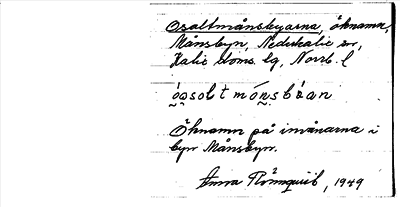 Osaltmånsbyarna, öknamn,
Månsbyn, Nederkalix sn,
Kalix doms. lg, Norrb. l
Öknamn på invånarna i
byn Månsbyn.
Anna Rönnqvist, 1949